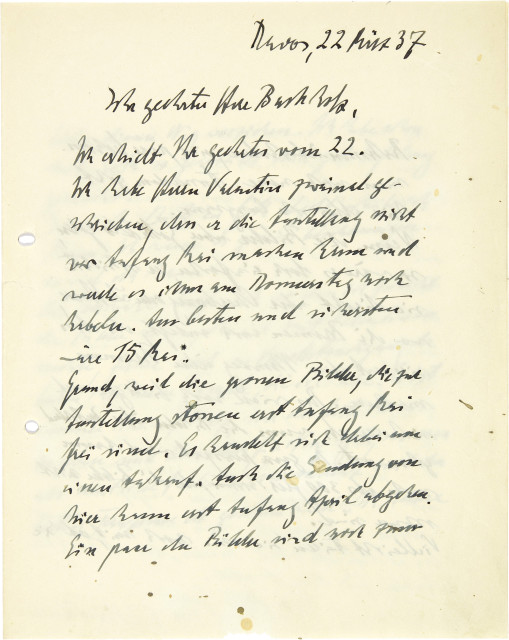 Davos, 22 März 37
Sehr geehrter Herr Buchholz,
Ich erhielt Ihr geehrtes vom 22.
Ich habe Herrn Valentin zweimal ge-
schrieben, dass er die Ausstellung nicht
vor Anfang Mai machen kann und
werde es ihm am Donnerstag noch
kabeln. Am besten und sichersten
wäre 15 Mai.
Grund, weil die grossen Bilder, die zur
Ausstellung sollen erst Anfang Mai
frei sind. Es handelt sich dabei um
einen Ankauf. Auch die Sendung von
hier kann erst Anfang April abgehen.
Ein paar der Bilder sind noch zum